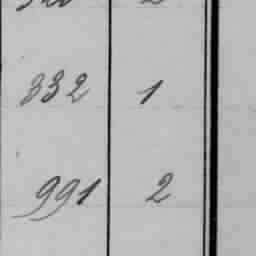 332 1
991 2